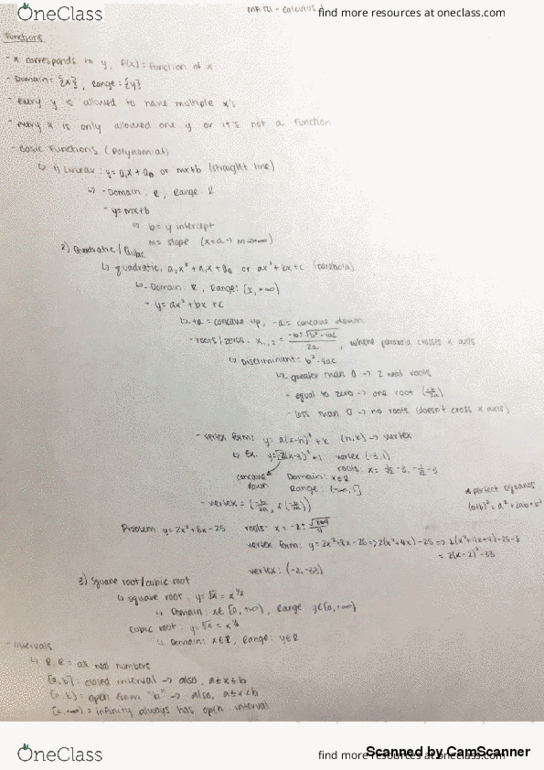 OneClass
find more resources at oneclass.com
Functions
- x corresponds to y, f(x) = function of x
- Domain = {x}, Range = {y}
- every y is allowed to have multiple x's
- every x is only allowed one y or it's not a function
- Basic Functions (Polynomial)
↳ 1) Linear: y = a₁x + a₀ or mx+b (straight line)
↳ - Domain: R, Range: R
- y=mx+b
↳ b= y intercept
m= slope
2) Quadratic/Cubic
↳ quadratic: a₂x² + a₁x + a₀ or ax² + bx + c (parabola)
↳ - Domain: R, Range: [x, +∞)
- y = ax² + bx + c
↳ +a = concave up, -a = concave down
- roots/zeros: x₁,₂ = (-b±√(b²-4ac))/2a, where parabola crosses x axis
↳ Discriminant: b²-4ac
↳ - greater than 0 → 2 real roots
- equal to zero → one root
- less than 0 → no roots (doesn't cross x axis)
- vertex form: y = a(x-h)² + k (h,k) → vertex
↳ Ex. vertex (-3,1)
concave down
Domain: x∈R
roots: x =
Range: (-∞, 1]
- vertex = (-b/2a, f(-b/2a))
* perfect squares
(a+b)² = a² + 2ab + b²
Problem: y = 2x²+8x-25 roots: x = -2±
vertex form: y = 2x²+8x-25 => 2(x²+4x)-25 => 2(x²+4x+4)-25-8
= 2(x-2)²-33
vertex: (-2,-33)
3) Square root/cubic root
↳ square root: y=√x = x^1/2
↳ Domain: x∈[0, +∞), Range y∈[0, +∞)
cubic root: y=∛x = x^1/3
↳ Domain: x∈R, Range: y∈R
- Intervals
↳ R, R = all real numbers
[a,b]: closed interval → also, a≤x≤b
[a,b): open from "b" → also, a≤x<b
[a,∞) = infinity always has open interval
OneClass
find more resources at oneclass.com
Scanned by CamScanner